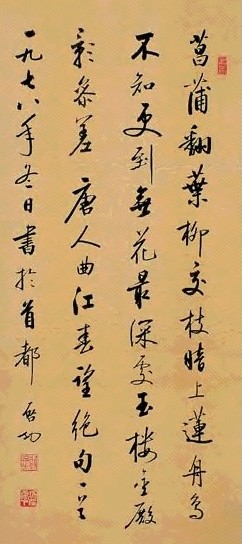 菖蒲翻葉柳交枝暗上蓮舟鳥
不知更到無花最深處玉樓金殿
影參差 唐人曲江春望絕句一首
一九七八年冬日書於首都 啓功